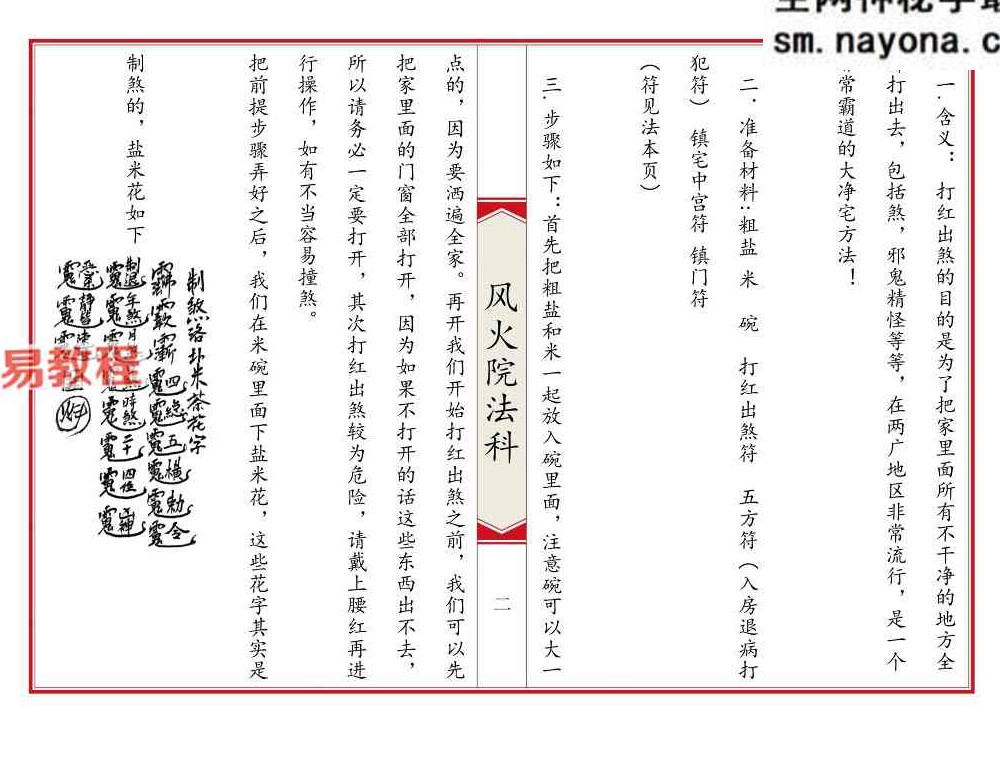 sm.nayona.c
一．含义： 打红出煞的目的是为了把家里面所有不干净的地方全
打出去，包括煞，邪鬼精怪等等，在两广地区非常流行，是一个
常霸道的大净宅方法！
二．准备材料:粗盐 米 碗 打红出煞符 五方符（入房退病打
犯符） 镇宅中宫符 镇门符
（符见法本页）
三．步骤如下：首先把粗盐和米一起放入碗里面，注意碗可以大一
风火院法科
二
点的，因为要洒遍全家。再开我们开始打红出煞之前，我们可以先
把家里面的门窗全部打开，因为如果不打开的话这些东西出不去，
所以请务必一定要打开，其次打红出煞较为危险，请戴上腰红再进
行操作，如有不当容易撞煞。
把前提步骤弄好之后，我们在米碗里面下盐米花，这些花字其实是
制煞的，盐米花如下
制煞洛卦米茶花字
易教程